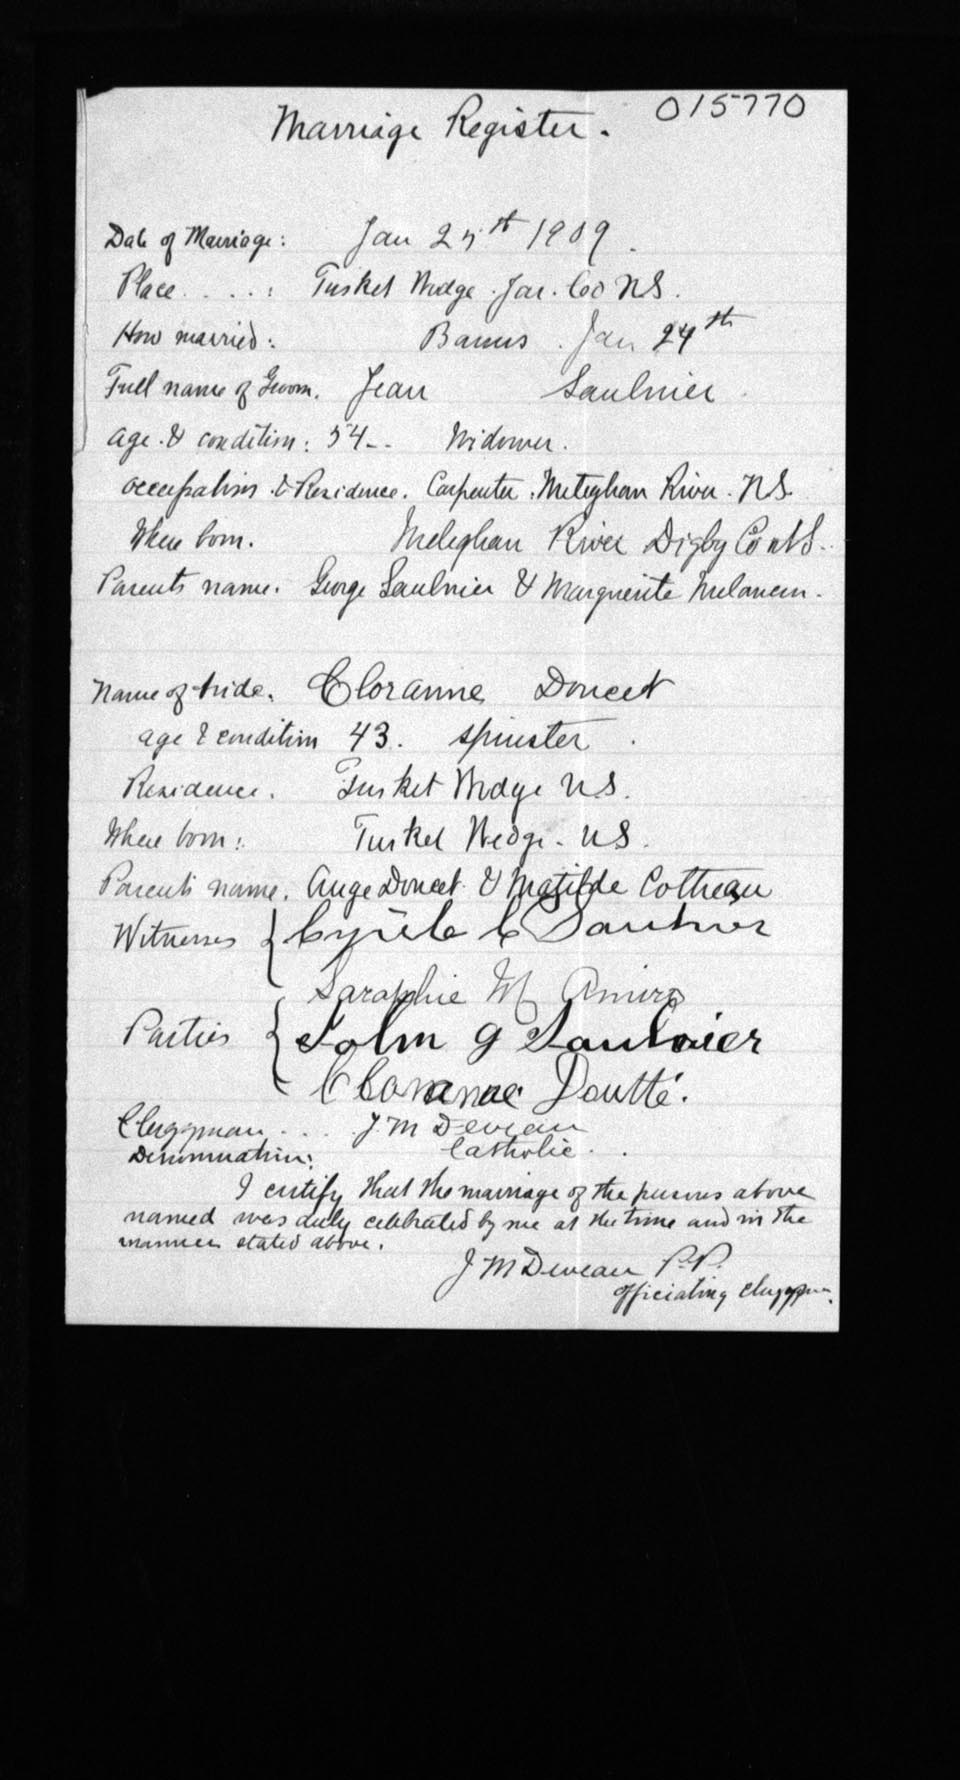 015770
Marriage Register.
Date of Marriage: Jan 25th 1909.
Place . . . . : Tusket Wedge. Yar. Co NS.
How married: Banns. Jan 24th
Full name of Groom. Jean Saulnier.
age. & condition: 54 -. Widower.
occupation & Residence. Carpenter. Meteghan River. N.S.
Where born. Meteghan River Digby Co NS.
Parents name. George Saulnier & Marguerite Melancon.
Name of bride. Cloranne Doucet
age & condition 43. spinster.
Residence. Tusket Wedge N.S.
Where born: Tusket Wedge. NS.
Parents name. Ange Doucet & Matilde Cottreau
Witnesses { Cyrile C Saulnier
Saraphie M Amiro
Parties { John G Saulnier
Cloranne Doutté.
Clergyman . . . . J. M Deveau
Denomination: Catholic.
I certify that the marriage of the persons above
named was duly celebrated by me at the time and in the
manner stated above.
J M Deveau P.P.
officiating clergyman.